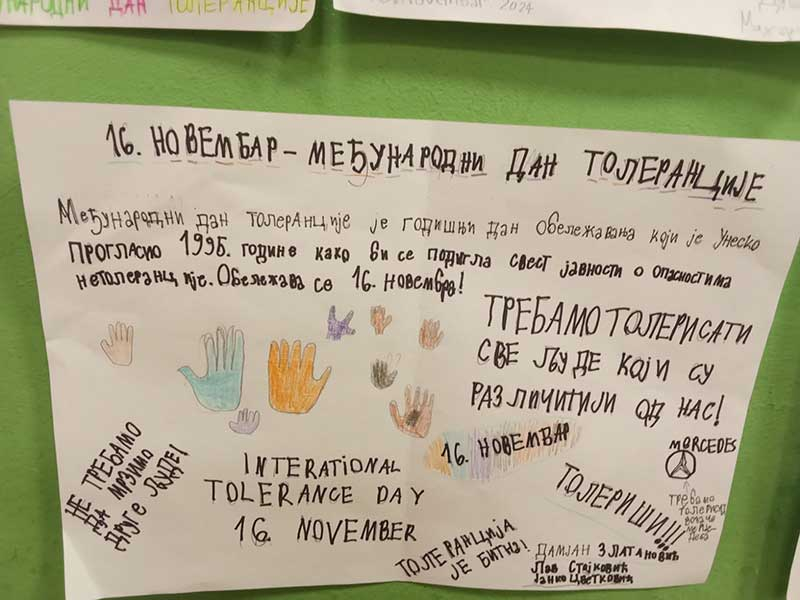 НАРОДНИ ДАН ТОЛЕРАНЦИЈЕ
Novembar 2024
16. НОВЕМБАР – МЕЂУНАРОДНИ ДАН ТОЛЕРАНЦИЈЕ
Међународни дан толеранције је годишњи дан обележавања који је УНЕСКО
ПРОГЛАСИО 1995. године како би се подигла свест јавности о опасностима
нетолеранције. Обележава се 16. Новембра!
ТРЕБАМО ТОЛЕРИСАТИ
СВЕ ЉУДЕ КОЈИ СУ
РАЗЛИЧИТИЈИ ОД НАС!
16. НОВЕМБАР
MORCEDES
НЕ ТРЕБАМО
ДА МРЗИМО
ДРУГЕ ЉУДЕ!
INTERATIONAL
TOLERANCE DAY
16. NOVEMBER
ТОЛЕРИШИ!!!
Требамо
ТОЛЕРИСАТ
возаче
ТОЛЕРАНЦИЈА
ЈЕ БИТНА!
ДАМЈАН ЗЛАТАНОВИЋ
Лав Стајковић
Јанко Цветковић